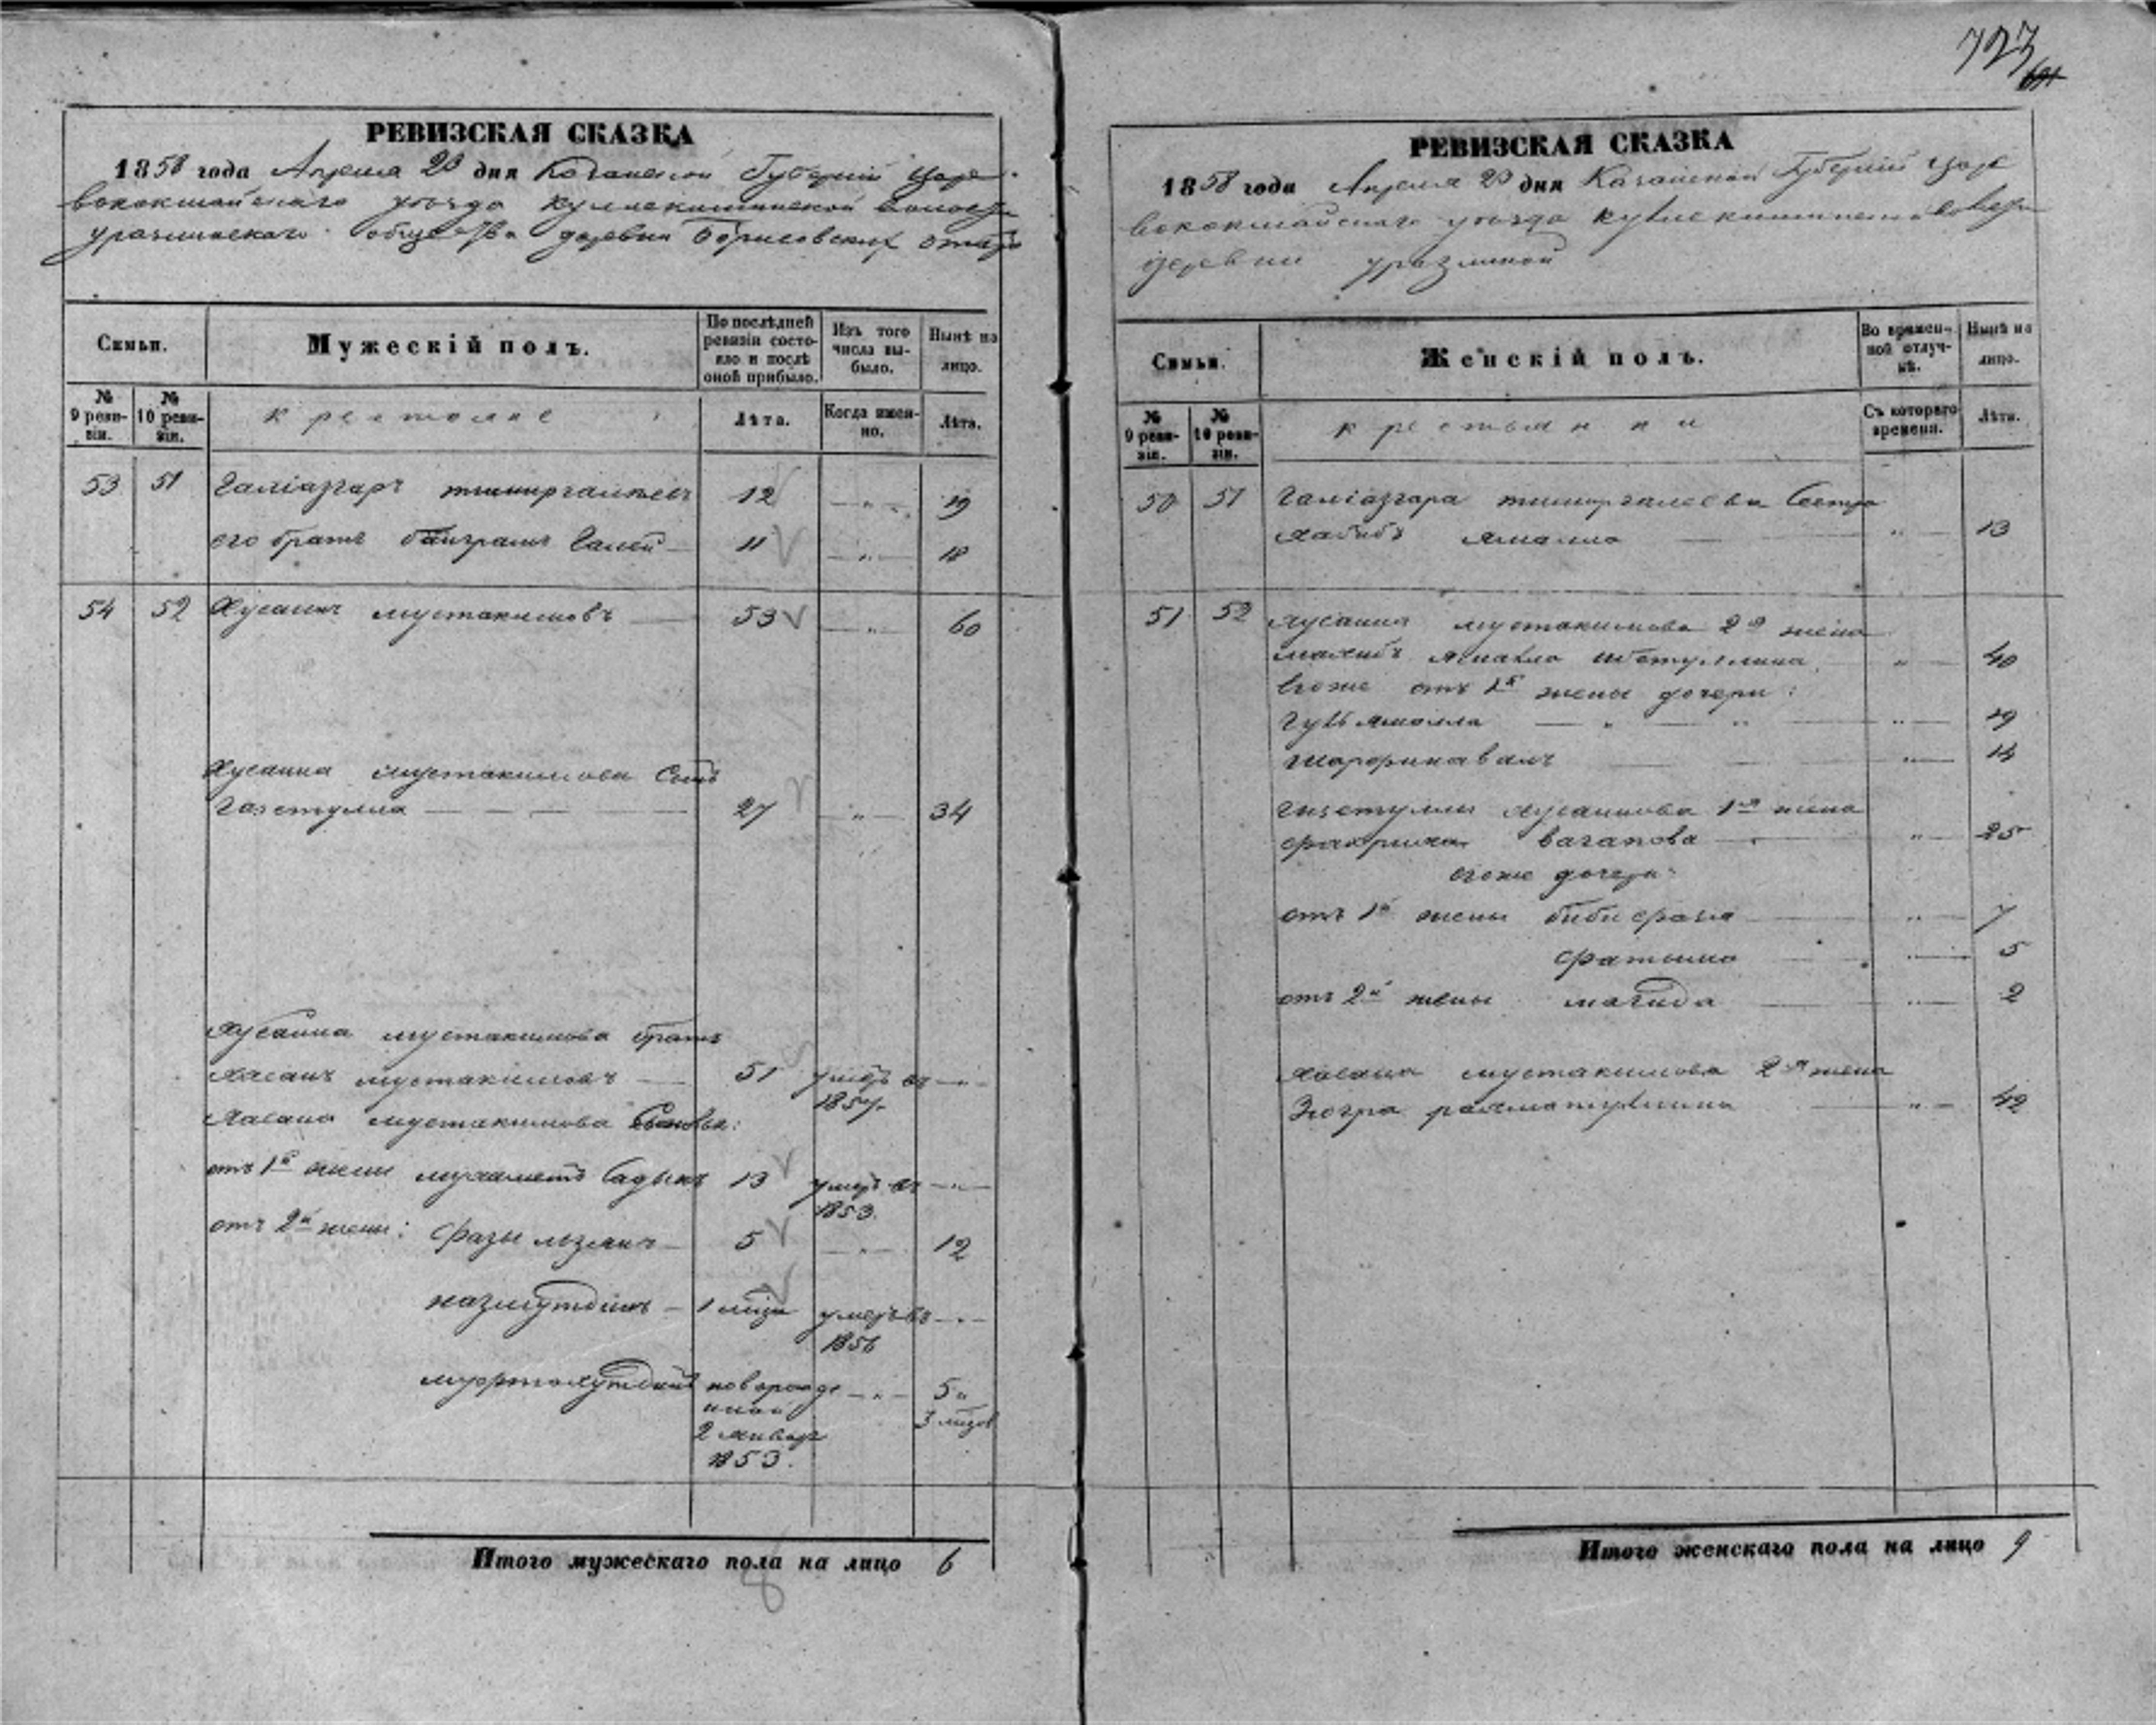 723
РЕВИЗСКАЯ СКАЗКА
1858 года Апреля 20 дня Казанской Губерніи Царе-
вококшайскаго уѣзда Кулле киминской волости
уразлинскаго общества деревни Борисовских отар
Семьи.
Мужескій полъ.
По послѣдней ревизіи состояло и послѣ оной прибыло.
Изъ того числа выбыло.
Нынѣ на лицо.
№ 9 ревизіи.
№ 10 ревизіи.
крестьяне
Лѣта.
Когда именно.
Лѣта.
53 51 Галіазгаръ 12 — „ — 19
его братъ Галей — 11 — „ — 18
54 52 Хусаинъ мустакимовъ — 53 — „ — 60
Хусаина мустакимова Сынъ
Газетулла — — — — 27 — „ — 34
Хусаина мустакимова братъ
Хасанъ мустакимовъ — 51 умеръ въ — „ —
1857.
Хасана мустакимова Сыновья:
отъ 1й жены мухаметъ Садыкъ 13 умеръ въ — „ —
1853.
отъ 2й жены: Фазылзянъ — 5 — „ — 12
назмутдинъ — 1 мѣся умеръ въ — „ —
1856
новорожде — „ — 5 и
нный 3 мѣсов
2 январ
1853.
Итого мужескаго пола на лицо 6
8
РЕВИЗСКАЯ СКАЗКА
1858 года Апреля 20 дня Казанской Губерніи Царе
вококшайскаго уѣзда Кулле киминской волости
деревни уразлиной
Семьи.
Женскій полъ.
Во временной отлучкѣ.
Нынѣ на лицо.
№ 9 ревизіи.
№ 10 ревизіи.
крестьянки
Съ котораго времени.
Лѣта.
50 51 Галіазгара Сестра
Хабибъ Ямалла — „ — 13
51 52 Хусаина мустакимова 2я жена
— „ — 40
Егоже отъ 1й жены дочери:
Гуль ямалла — „ — „ „ — 19
— „ — 14
Газетуллы Хусаинова 1я жена
Вагапова — „ — 25
егоже дочери:
отъ 1й жены биби — „ — 7
Фатыма — „ — 5
отъ 2й жены магида — „ — 2
Хасана мустакимова 2я жена
Зюгра рахматуллина — „ — 42
Итого женскаго пола на лицо 9